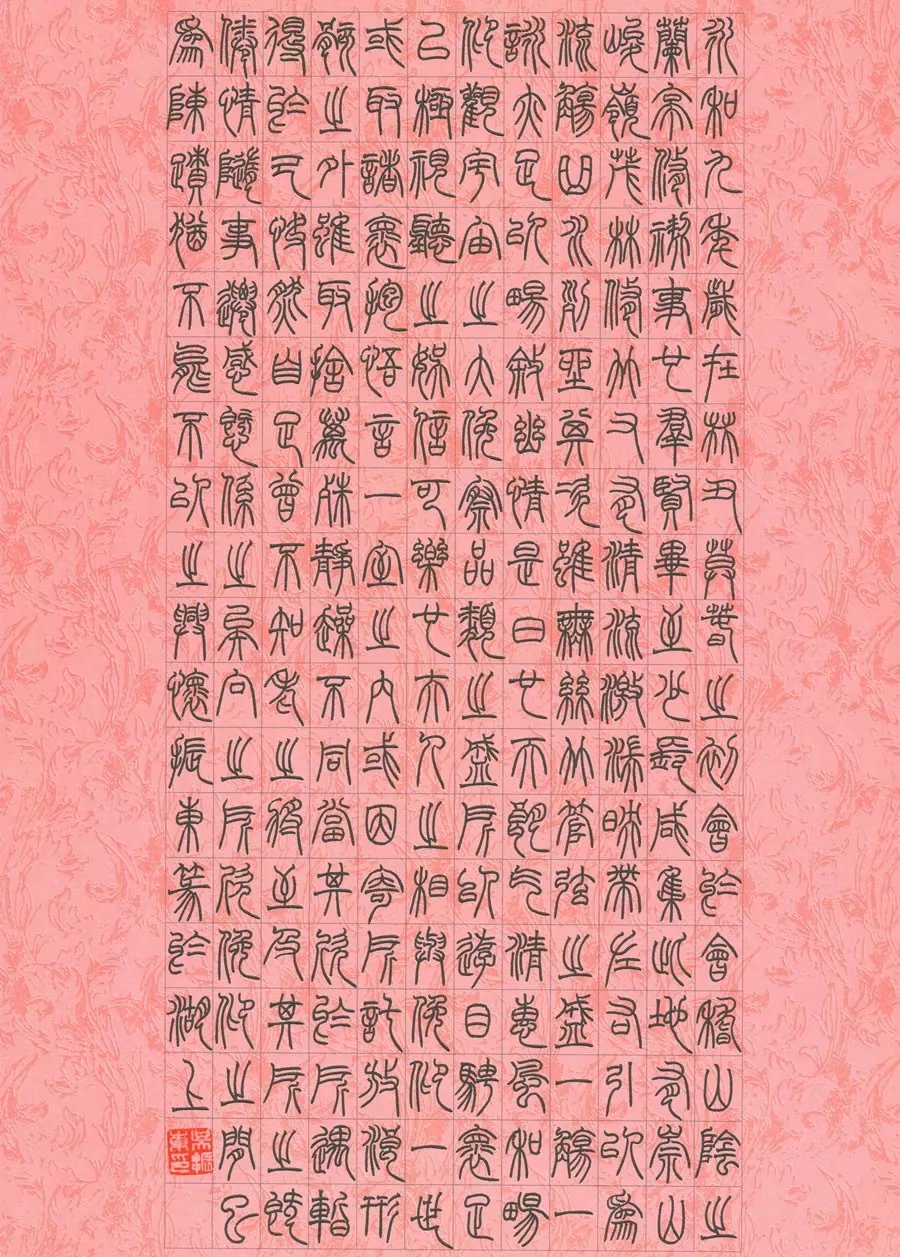 永和九年歲在癸丑莫春之初會於會稽山陰之
蘭亭修禊事也羣賢畢至少長咸集此地有崇山
峻嶺茂林修竹又有清流激湍映帶左右引以為
流觴曲水列坐其次雖無絲竹管弦之盛一觴一
詠亦足以暢敘幽情是日也天朗氣清惠風和暢
仰觀宇宙之大俯察品類之盛所以遊目騁懷足
以極視聽之娛信可樂也夫人之相與俯仰一世
或取諸懷抱悟言一室之內或因寄所託放浪形
骸之外雖取捨萬殊靜躁不同當其欣於所遇暫
得於己快然自足曾不知老之將至及其所之既
倦情隨事遷感慨係之矣向之所欣俯仰之間已
為陳蹟猶不能不以之興懷振東篆於湖上
吳振東印